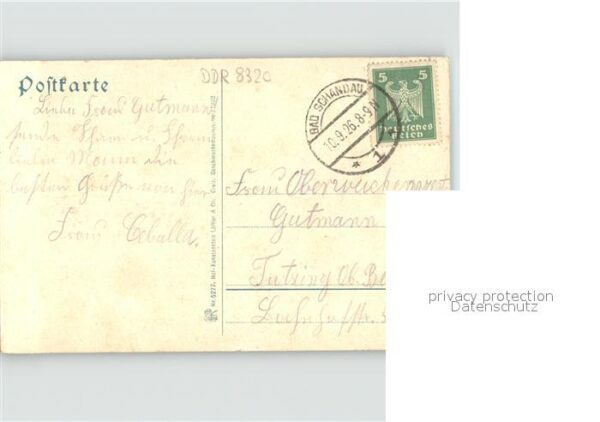 Postkarte
DDR 8320
Liebe Frau Gutmann
sende Ihnen u. Ihrem
lieben Mann die
besten Grüße von hier
Frau Cebulla.
BAD SCHANDAU
10.9.26.8-9 N
* 1
5 5
Deutsches
Reich
Frau Oberweichenwart
Gutmann
Tutzing Ob. Be
Bahnhofstr.
Nr. 5277.
privacy protection
Datenschutz